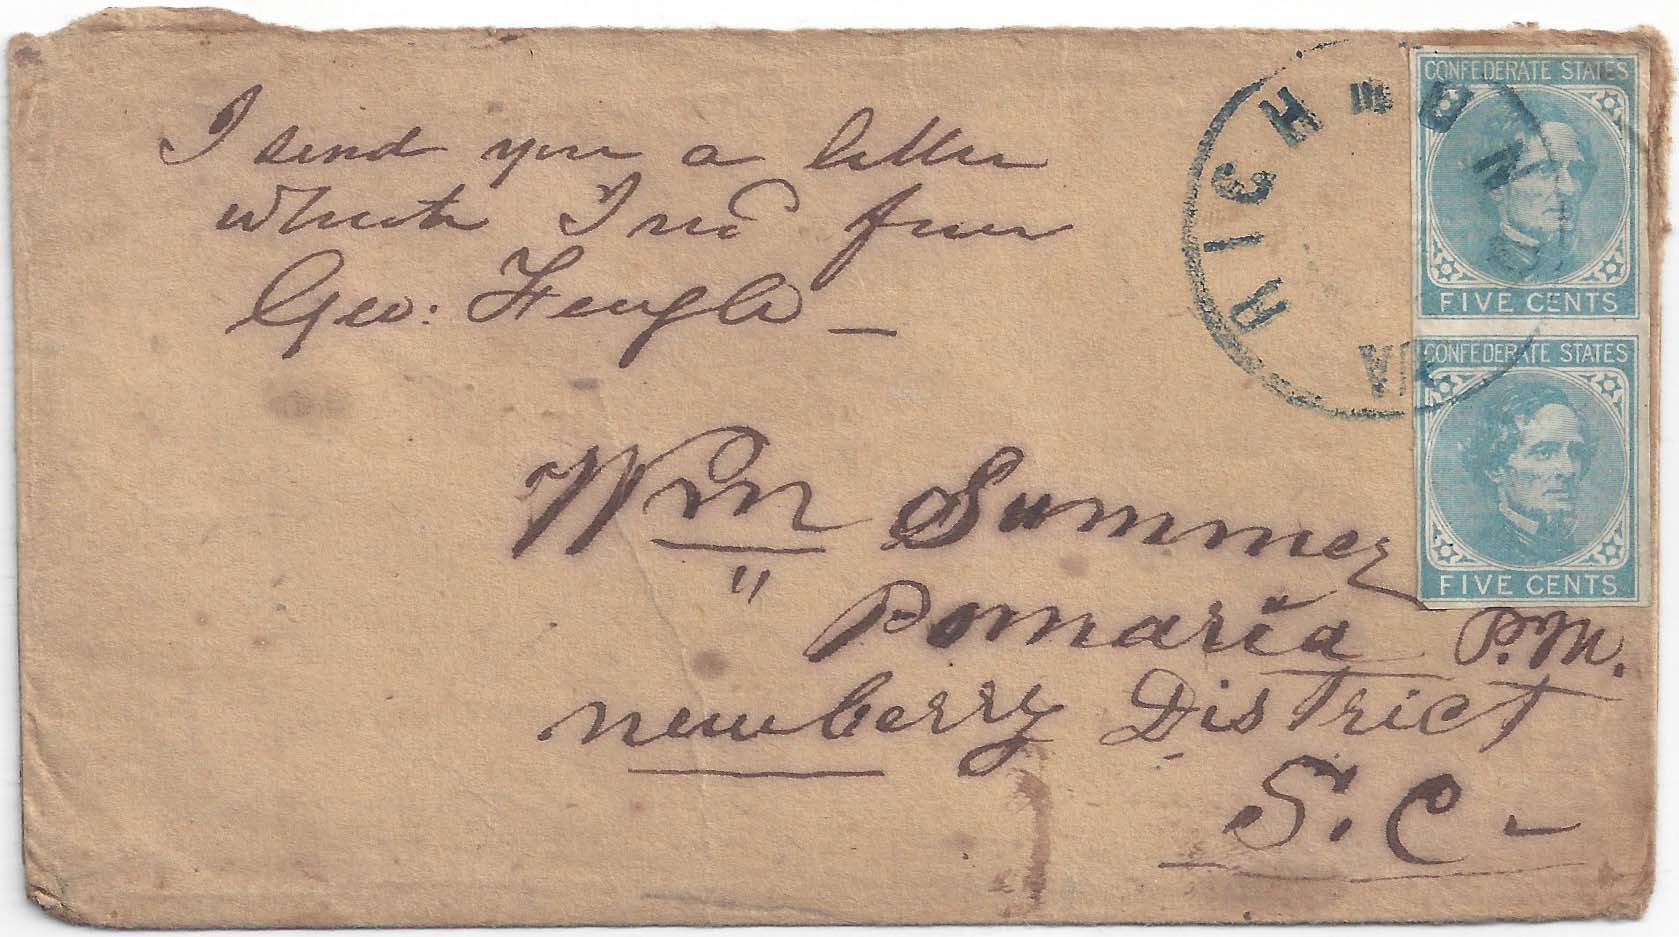 I send you a letter
which I recd from
Geo:
RICHMOND
VA
CONFEDERATE STATES
FIVE CENTS
CONFEDERATE STATES
FIVE CENTS
Wm Summer
Pomaria P.M.
Newberry District
S.C.